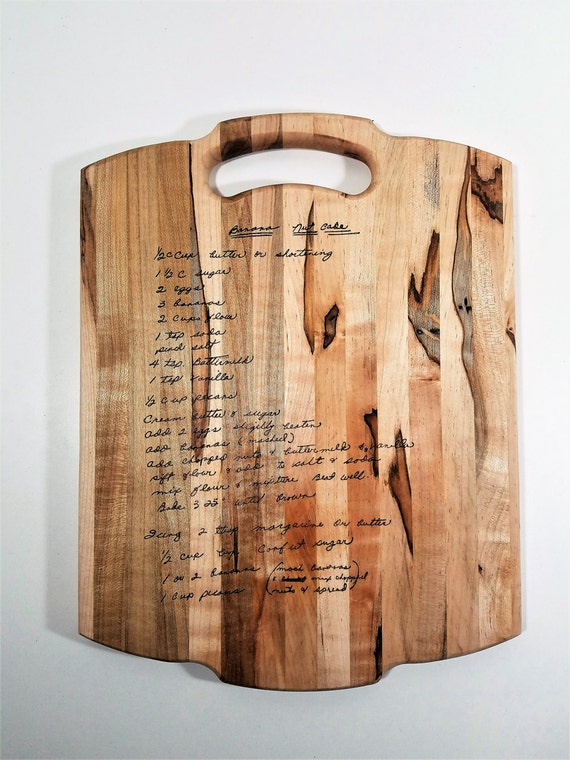 Banana Nut Cake
1/2 Cup butter or shortening
1 1/2 C sugar
2 eggs
3 bananas
2 cups flour
1 tsp soda
pinch salt
4 tsp. Buttermilk
1 tsp Vanilla
1/2 Cup pecans
Cream butter & sugar
add 2 eggs slightly beaten
add bananas (mashed)
add chopped nuts, buttermilk & vanilla
sift flour & add to salt & soda
mix flour & mixture Beat well.
Bake 325° until brown
Icing 2 tbsp margarine or butter
1/2 cup Confect sugar
1 or 2 bananas (mash bananas)
& mix chopped
1 Cup pecans (nuts & spread)